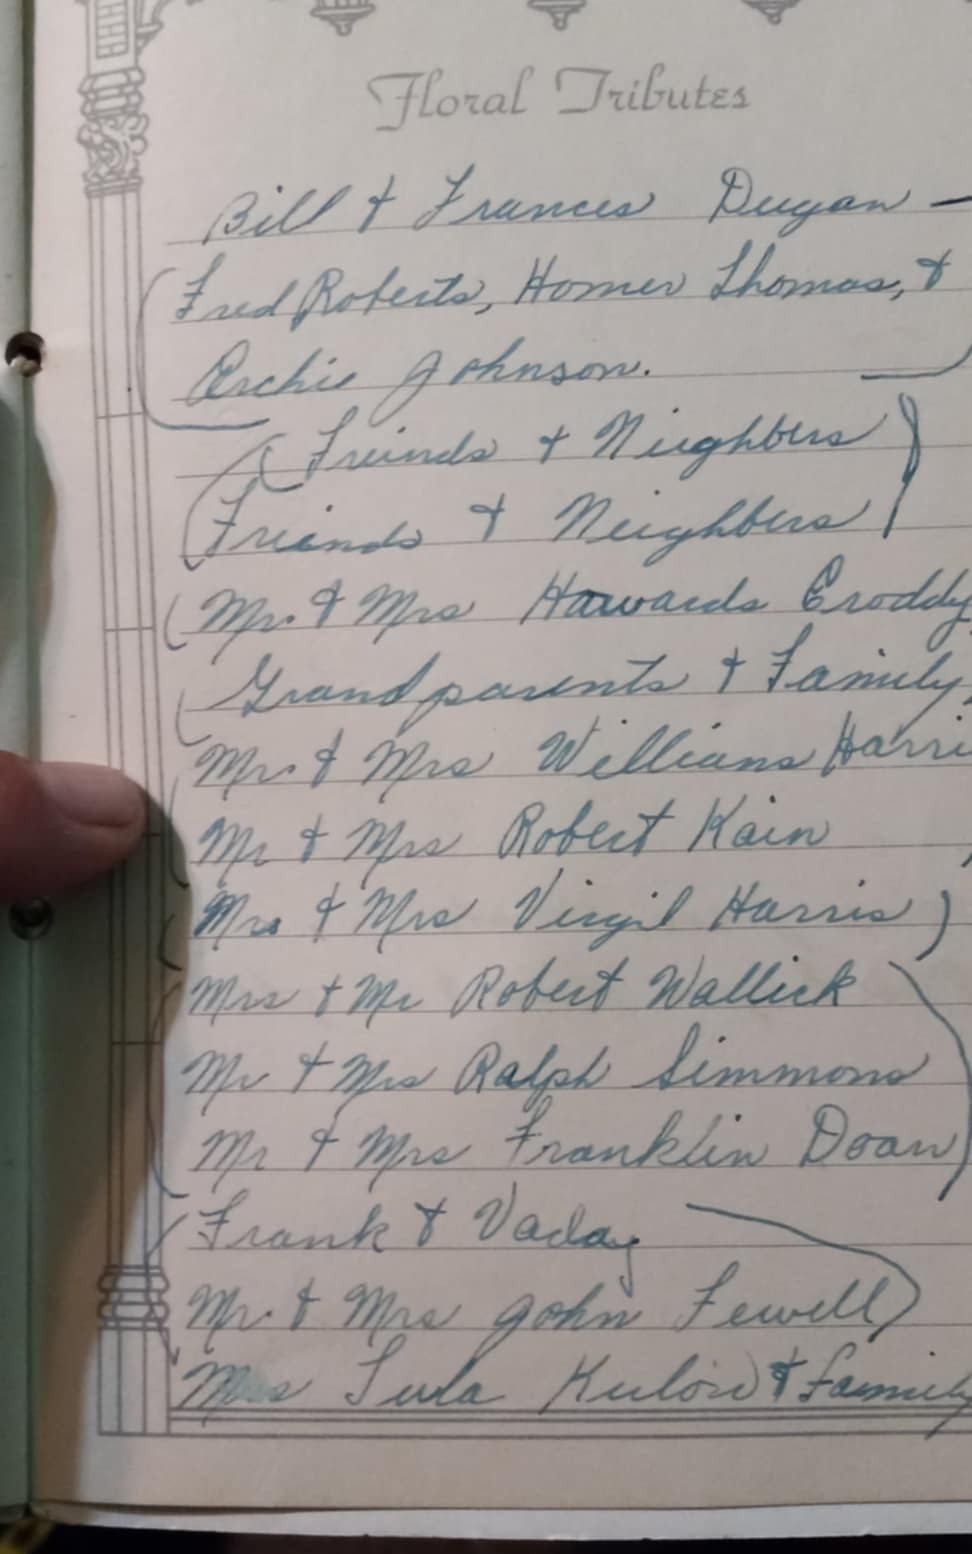 Floral Tributes
Bill & Frances Dugan —
Fred Roberts, Homer Thomas, &
Archie Johnson.
Freinds & Nieghbers
Friends & Neighbers
Mr. & Mrs Howards Eroddy
Grandparents & Family
Mr. & Mrs Williams Harri
Mr & Mrs Robert Kain
Mrs & Mrs Virgil Harris
Mrs & Mr Robert Wallick
Mr & Mrs Ralph Simmons
Mr & Mrs Franklin Doan
Frank & Vaday
Mr. & Mrs John Fewell
Mrs Lula & Family